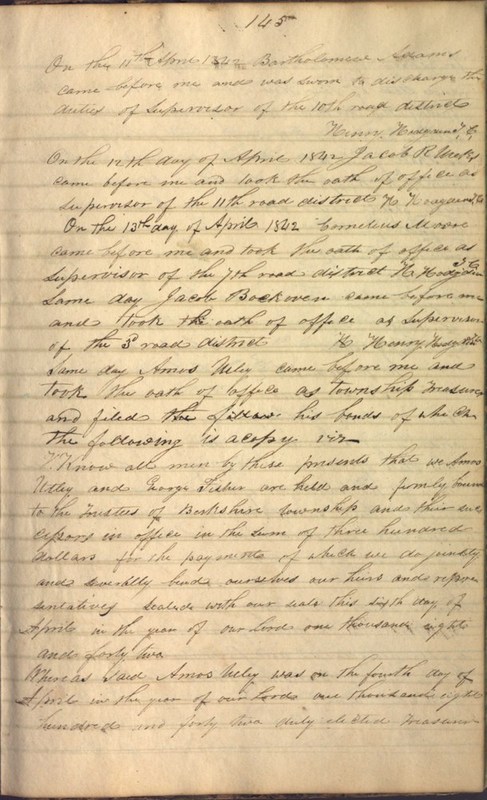 145
On the 11th April 1842 Bartholomew Adams
came before me and was sworn to discharge the
duties of Supervisor of the 10th road district
Henry
On the 12th day of April 1842 Jacob R
came before me and took the oath of office as
supervisor of the 11th road district H
On the 13th day of April 1842 Cornelius Moore
came before me and took the oath of office as
Supervisor of the 7th road district H
Same day Jacob Bockoven came before me
and took the oath of office as Supervisor
of the 3d road district Henry
Same day Amos Utley came before me and
took the oath of office as township Treasurer
and filed the his bonds of which
the following is a copy viz
Know all men by these presents that we Amos
Utley and George Fisher are held and firmly bound
to the Trustees of Berkshire township and their suc
cessors in office in the sum of three hundred
dollars for the payment of which we do jointly
and severally bind ourselves our heirs and repre
sentatives Sealed with our seals this sixth day of
April in the year of our Lord one thousand eight
and forty two
Whereas Said Amos Utley was on the fourth day of
April in the year of our Lord one thousand eight
hundred and forty two duly elected Treasurer